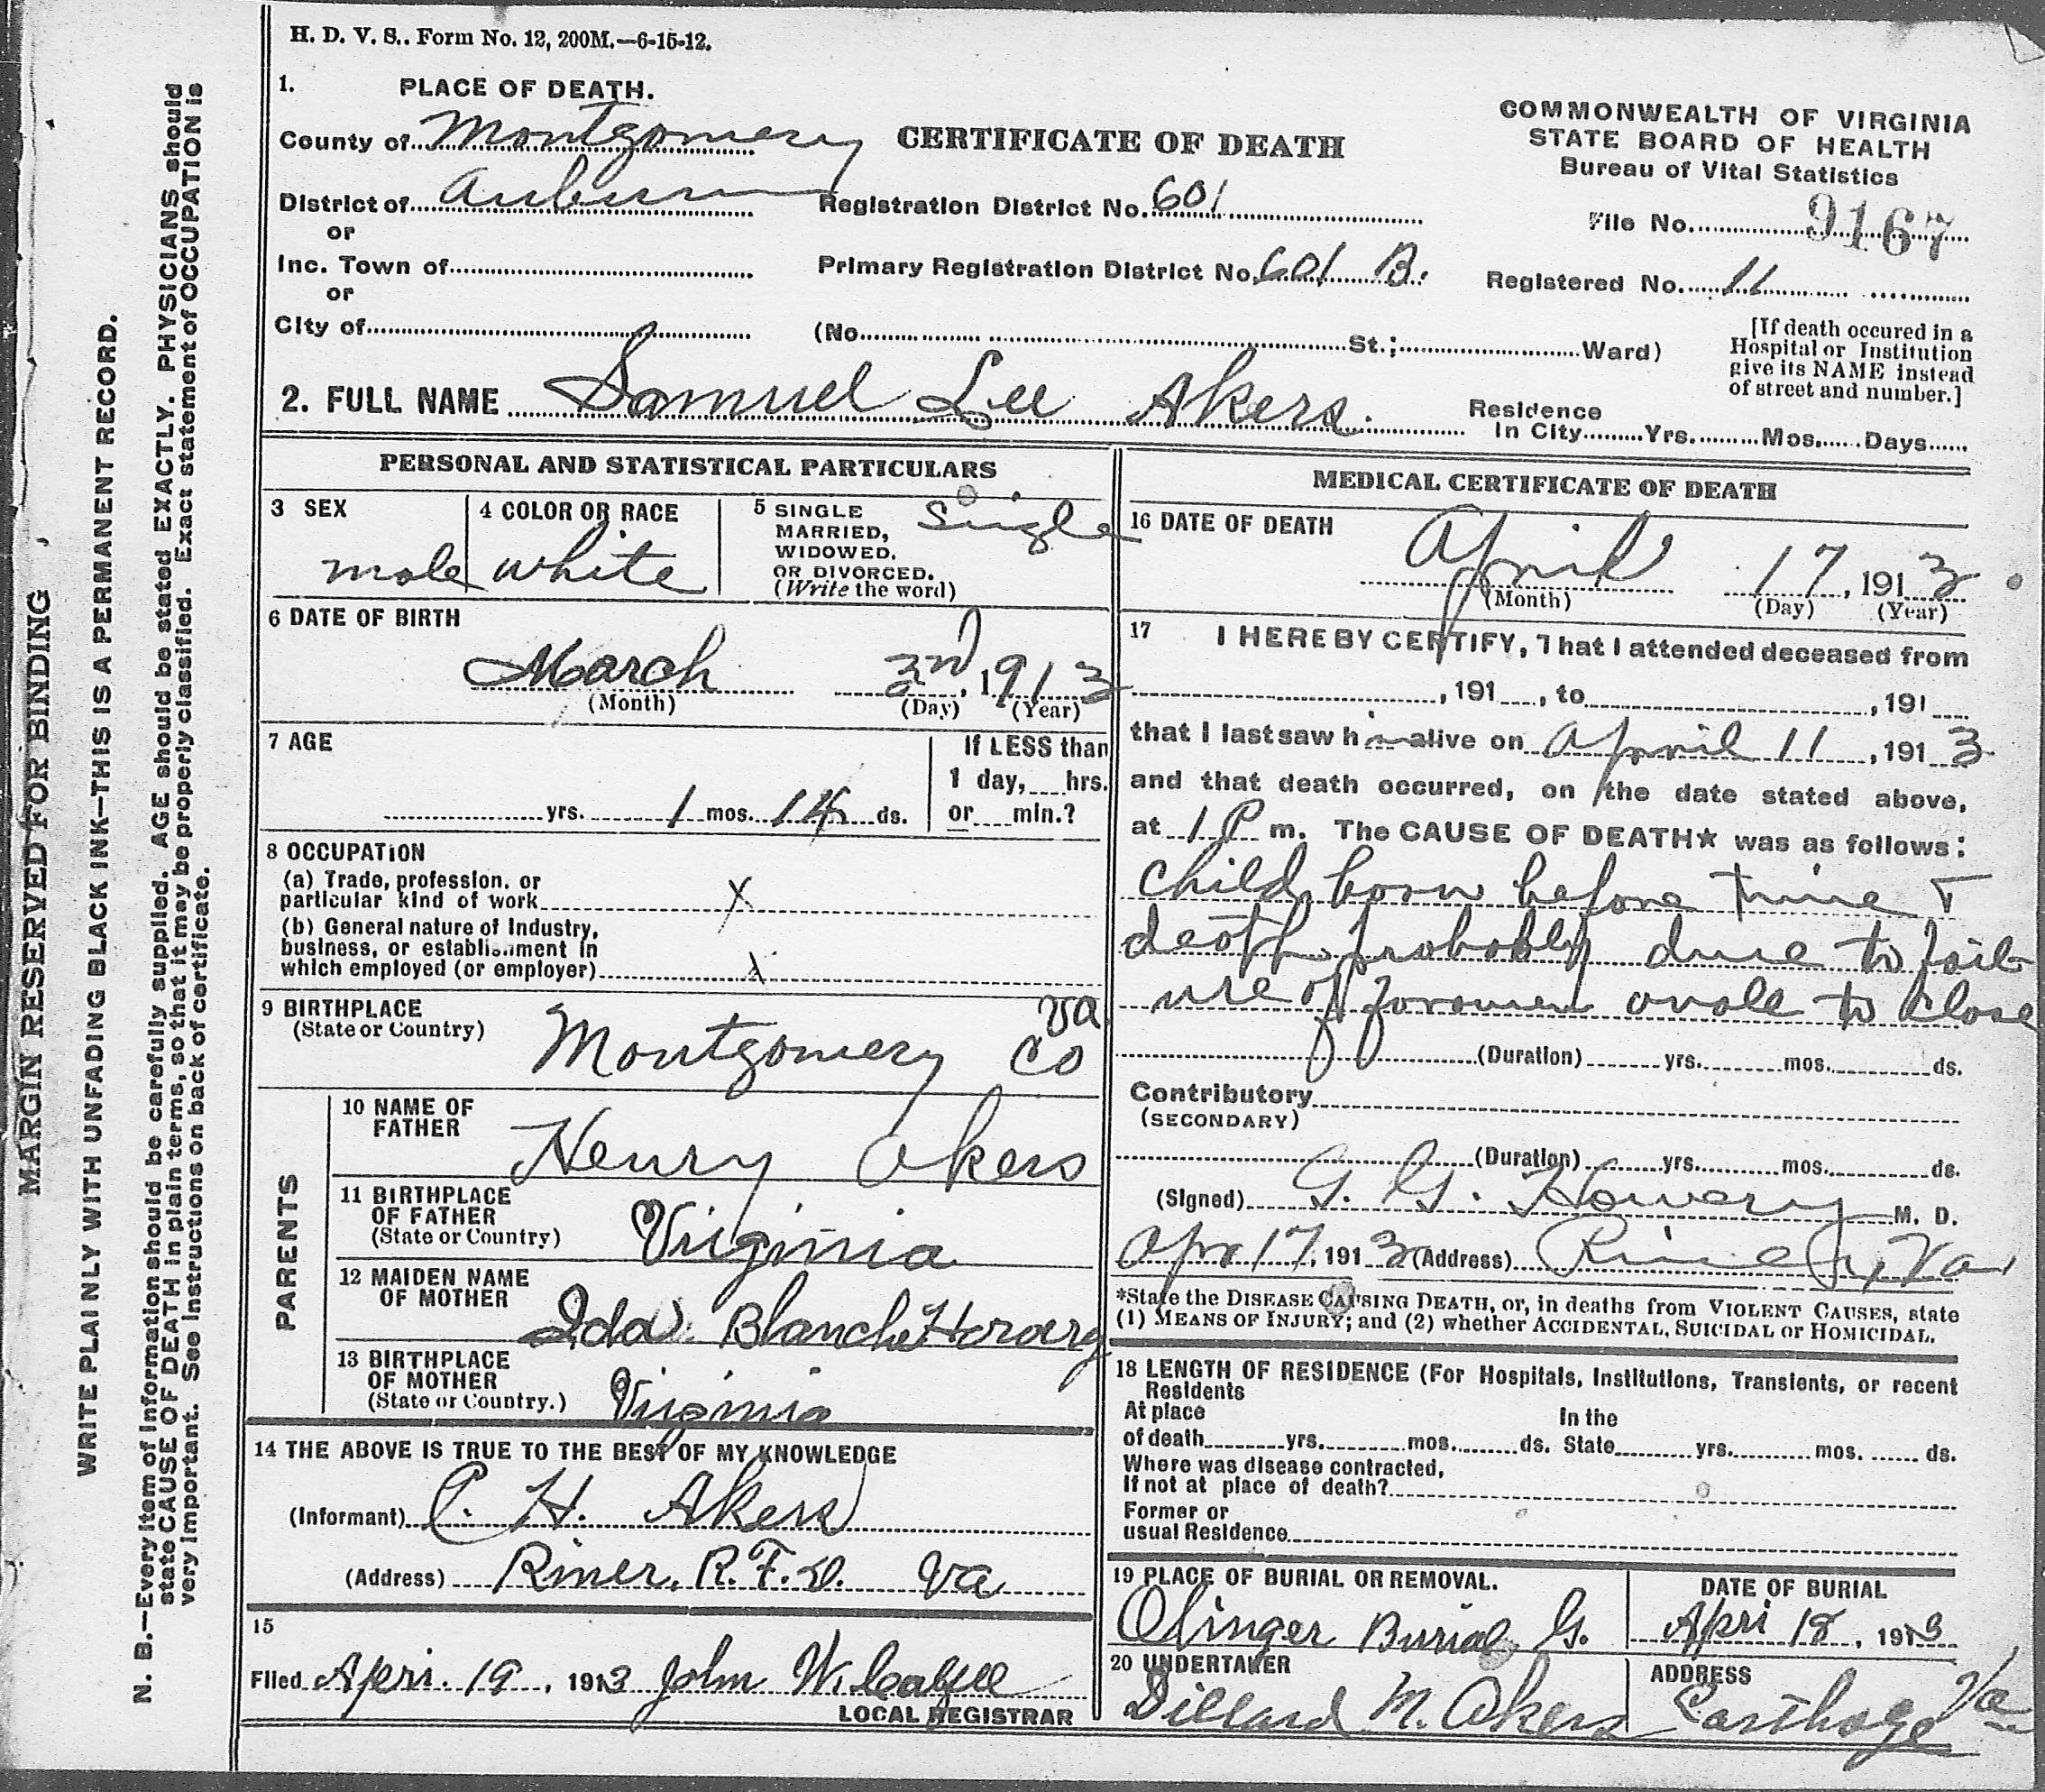 H. D. V. S.. Form No. 12, 200M.—6-15-12.
1. PLACE OF DEATH.
County of Montgomery
District of Auburn
or
Inc. Town of
or
City of
CERTIFICATE OF DEATH
Registration District No. 601
Primary Registration District No. 601 B.
(No. St.; Ward)
COMMONWEALTH OF VIRGINIA
STATE BOARD OF HEALTH
Bureau of Vital Statistics
File No. 9167
Registered No. 11
[If death occured in a
Hospital or Institution
give its NAME instead
of street and number.]
2. FULL NAME Samuel Lee Akers.
Residence
In City Yrs. Mos. Days
PERSONAL AND STATISTICAL PARTICULARS
3 SEX
male
4 COLOR OR RACE
white
5 SINGLE
MARRIED,
WIDOWED.
OR DIVORCED.
(Write the word)
Single
6 DATE OF BIRTH
March 3nd, 1913
(Month) (Day) (Year)
7 AGE
yrs. 1 mos. 14 ds.
If LESS than
1 day, hrs.
or min.?
8 OCCUPATION
(a) Trade, profession, or
particular kind of work X
(b) General nature of Industry,
business, or establishment in
which employed (or employer) X
9 BIRTHPLACE
(State or Country)
Montgomery Co Va
PARENTS
10 NAME OF
FATHER
Henry Akers
11 BIRTHPLACE
OF FATHER
(State or Country)
Virginia
12 MAIDEN NAME
OF MOTHER
Ida Blanche
13 BIRTHPLACE
OF MOTHER
(State or Country.)
Virginia
14 THE ABOVE IS TRUE TO THE BEST OF MY KNOWLEDGE
(Informant) C. H. Akers
(Address) Riner, R.F.D. Va
15
Filed Apri. 19, 1913 John W.
LOCAL REGISTRAR
MEDICAL CERTIFICATE OF DEATH
16 DATE OF DEATH
April 17, 1913
(Month) (Day) (Year)
17 I HEREBY CERTIFY, That I attended deceased from
, 191 , to , 191
that I last saw him alive on April 11, 1913
and that death occurred, on the date stated above,
at 1 P m. The CAUSE OF DEATH* was as follows:
Child born before time &
death probably due to fail-
ure of foramen ovale to close
(Duration) yrs. mos. ds.
Contributory
(SECONDARY)
(Duration) yrs. mos. ds.
(Signed) G. G. Howery M. D.
Apr 17, 1913 (Address) Riner, Va,
*State the DISEASE CAUSING DEATH, or, in deaths from VIOLENT CAUSES, state
(1) MEANS OF INJURY; and (2) whether ACCIDENTAL, SUICIDAL or HOMICIDAL.
18 LENGTH OF RESIDENCE (For Hospitals, Institutions, Transients, or recent
Residents
At place
of death yrs. mos. ds.
In the
State yrs. mos. ds.
Where was disease contracted,
If not at place of death?
Former or
usual Residence
19 PLACE OF BURIAL OR REMOVAL.
Olinger Burial G.
DATE OF BURIAL
Apri 18, 1913
20 UNDERTAKER
Dillard M. Akers
ADDRESS
Carthage Va
MARGIN RESERVED FOR BINDING
WRITE PLAINLY WITH UNFADING BLACK INK—THIS IS A PERMANENT RECORD.
N. B.—Every item of information should be carefully supplied. AGE should be stated EXACTLY. PHYSICIANS should
state CAUSE OF DEATH in plain terms, so that it may be properly classified. Exact statement of OCCUPATION is
very important. See instructions on back of certificate.